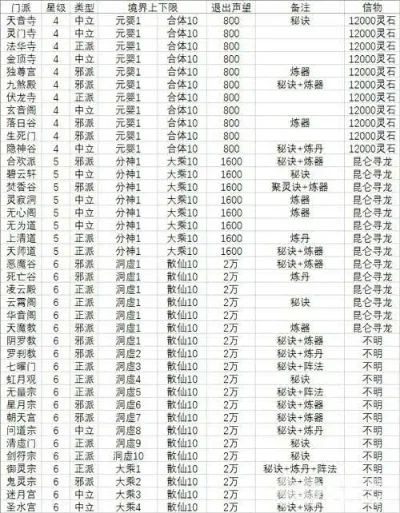 门派 星级 类型 境界上下限 退出声望 备注 信物
天音寺 4 中立 元婴1 合体10 800 秘诀 12000灵石
灵门寺 4 中立 元婴1 合体10 800 12000灵石
法华寺 4 正派 元婴1 合体10 800 12000灵石
金顶寺 4 中立 元婴1 合体10 800 12000灵石
独尊宫 4 邪派 元婴1 合体10 800 炼器 12000灵石
九煞殿 4 邪派 元婴1 合体10 800 秘诀+炼器 12000灵石
伏龙寺 4 正派 元婴1 合体10 800 12000灵石
玄音阁 4 中立 元婴1 合体10 800 12000灵石
落日谷 4 邪派 元婴1 合体10 800 炼器 12000灵石
生死门 4 邪派 元婴1 合体10 800 12000灵石
隐神谷 4 中立 元婴1 合体10 800 秘诀+炼丹 12000灵石
合欢派 5 邪派 分神1 大乘10 1600 秘诀+炼器 昆仑寻龙
碧云轩 5 中立 分神1 大乘10 1600 秘诀 昆仑寻龙
焚香谷 5 邪派 分神1 大乘10 1600 聚灵诀+炼器 昆仑寻龙
灵寂洞 5 中立 分神1 大乘10 1600 炼器 昆仑寻龙
无心阁 5 中立 分神1 大乘10 1600 炼器 昆仑寻龙
无为道 5 中立 分神1 大乘10 1600 昆仑寻龙
上清道 5 正派 分神1 大乘10 1600 炼丹 昆仑寻龙
天师道 5 正派 分神1 大乘10 1600 秘诀+炼器 昆仑寻龙
恶魔谷 6 邪派 洞虚1 散仙10 2万 秘诀+炼器 昆仑寻龙
死亡谷 6 邪派 洞虚1 散仙10 2万 炼丹 昆仑寻龙
凌云殿 6 正派 洞虚1 散仙10 2万 昆仑寻龙
云霄阁 6 正派 洞虚1 散仙10 2万 秘诀 昆仑寻龙
华音阁 6 正派 洞虚1 散仙10 2万 昆仑寻龙
天魔教 6 邪派 洞虚1 散仙10 2万 炼器 昆仑寻龙
阴罗教 6 邪派 洞虚1 散仙10 2万 秘诀+炼器 不明
罗刹教 6 邪派 洞虚2 散仙10 2万 秘诀+炼丹 不明
七曜门 6 正派 洞虚3 散仙10 2万 秘诀+阵法 不明
虹月观 6 正派 洞虚4 散仙10 2万 秘诀 不明
无量宗 6 正派 洞虚5 散仙10 2万 秘诀+阵法 不明
星月宗 6 邪派 洞虚6 散仙10 2万 秘诀+炼器 不明
朝天宫 6 邪派 洞虚7 散仙10 2万 秘诀+炼器 不明
问道宗 6 中立 洞虚8 散仙10 2万 秘诀+炼丹 不明
清虚门 6 正派 洞虚9 散仙10 2万 秘诀 不明
剑符宗 6 正派 洞虚10 散仙10 2万 秘诀 不明
御灵宗 6 正派 大乘1 散仙10 2万 秘诀+炼丹+阵法 不明
鬼灵宗 6 邪派 大乘2 散仙10 2万 秘诀+炼器 不明
迷月宫 6 中立 大乘3 散仙10 2万 秘诀+炼丹
圣水宫 6 中立 大乘4 散仙10 2万 秘诀+炼丹